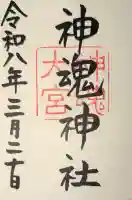 神魂神社
大宮
神魂
令和八年三月二十日